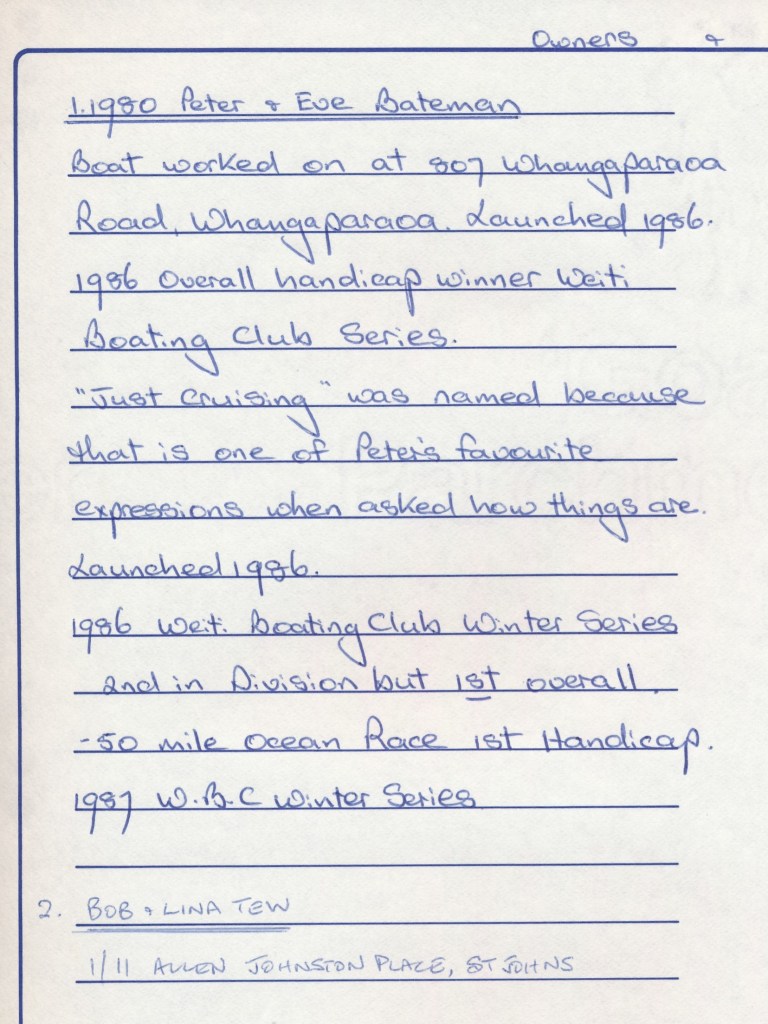 Owners &
1. 1980 Peter & Eve Bateman
Boat worked on at 807 Whangaparaoa
Road, Whangaparaoa. Launched 1986.
1986 Overall handicap winner Weiti
Boating Club Series.
"Just Cruising" was named because
that is one of Peter's favourite
expressions when asked how things are.
Launched 1986.
1986 Weiti Boating Club Winter Series
2nd in Division but 1st overall.
-50 mile Ocean Race 1st Handicap.
1987 W.B.C Winter Series
2. BOB & LINA TEW
1/11 ALLEN JOHNSTON PLACE, ST JOHNS